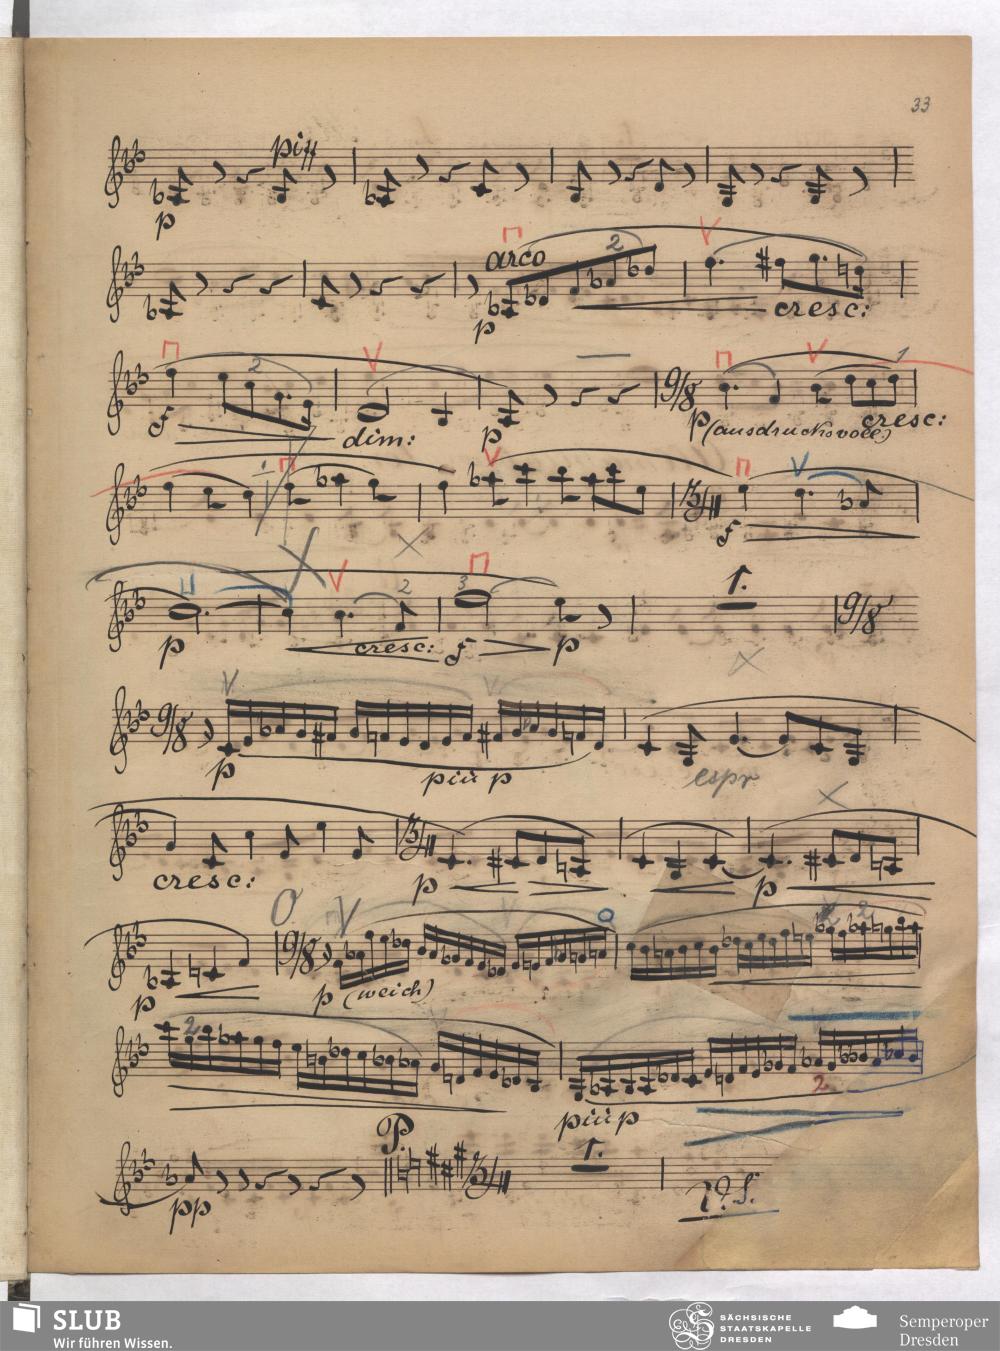 33
pizz
p
arco
2
p
cresc:
2
1
f
dim:
p
9/8
p (ausdrucksvoll)
cresc:
f
2
3
1.
p
cresc:
f
p
9/8
9/8
p
più p
espr
cresc:
p
p
9/8
2
p
p (weich)
2
2
più p
P.
1.
pp
V. S.
SLUB
Wir führen Wissen.
SÄCHSISCHE
STAATSKAPELLE
DRESDEN
Semperoper
Dresden